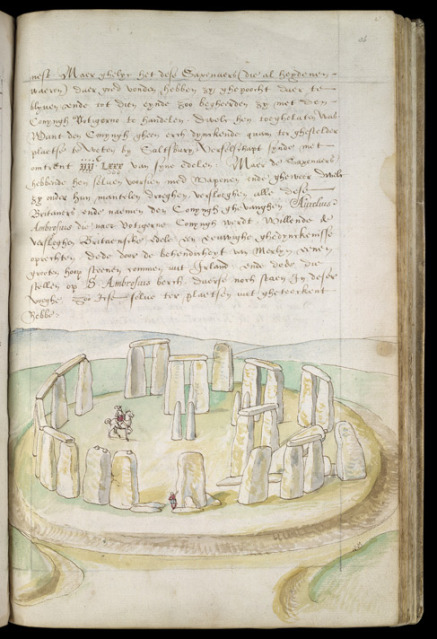 nest Maer ghelyc het dese Saxenaers (die al heydenen
waeren) daer goed vonden hebben zy ghepocht daer te
blyven ende tot dien eynde zoo begheerden zy met den
Conyngh Votigerne te handelen. dwelc hen toeghelaten was
Want den Conyngh gheen erch dynckende quam ter ghestelder
plaetse te weten by Saltsbury, Verselschapt synde met
omtrent iiii Lxxx van syne edelen. Maer de Saxenaers
hebbende hen selven voorsien met wapenen ende gheweer dwelc
zy onder hun mantelen droeghen versloeghen alle dese
Britaners ende naemen den Conyngh ghevanghen. Aurelius
Ambrosius die naer Votigerne Conyngh werdt Willende de
versleghen Britaensche edele een eeuwighe ghedynckenisse
oprechten dede door de behendicheyt van Merlyn eenen
grooten hoop steenen commen uut Irland ende dede die
stellen op S. Ambrosius berch. daerse noch staen In deser
voeghe. die selve ter plaetsen uut gheteeckent
hebbe.